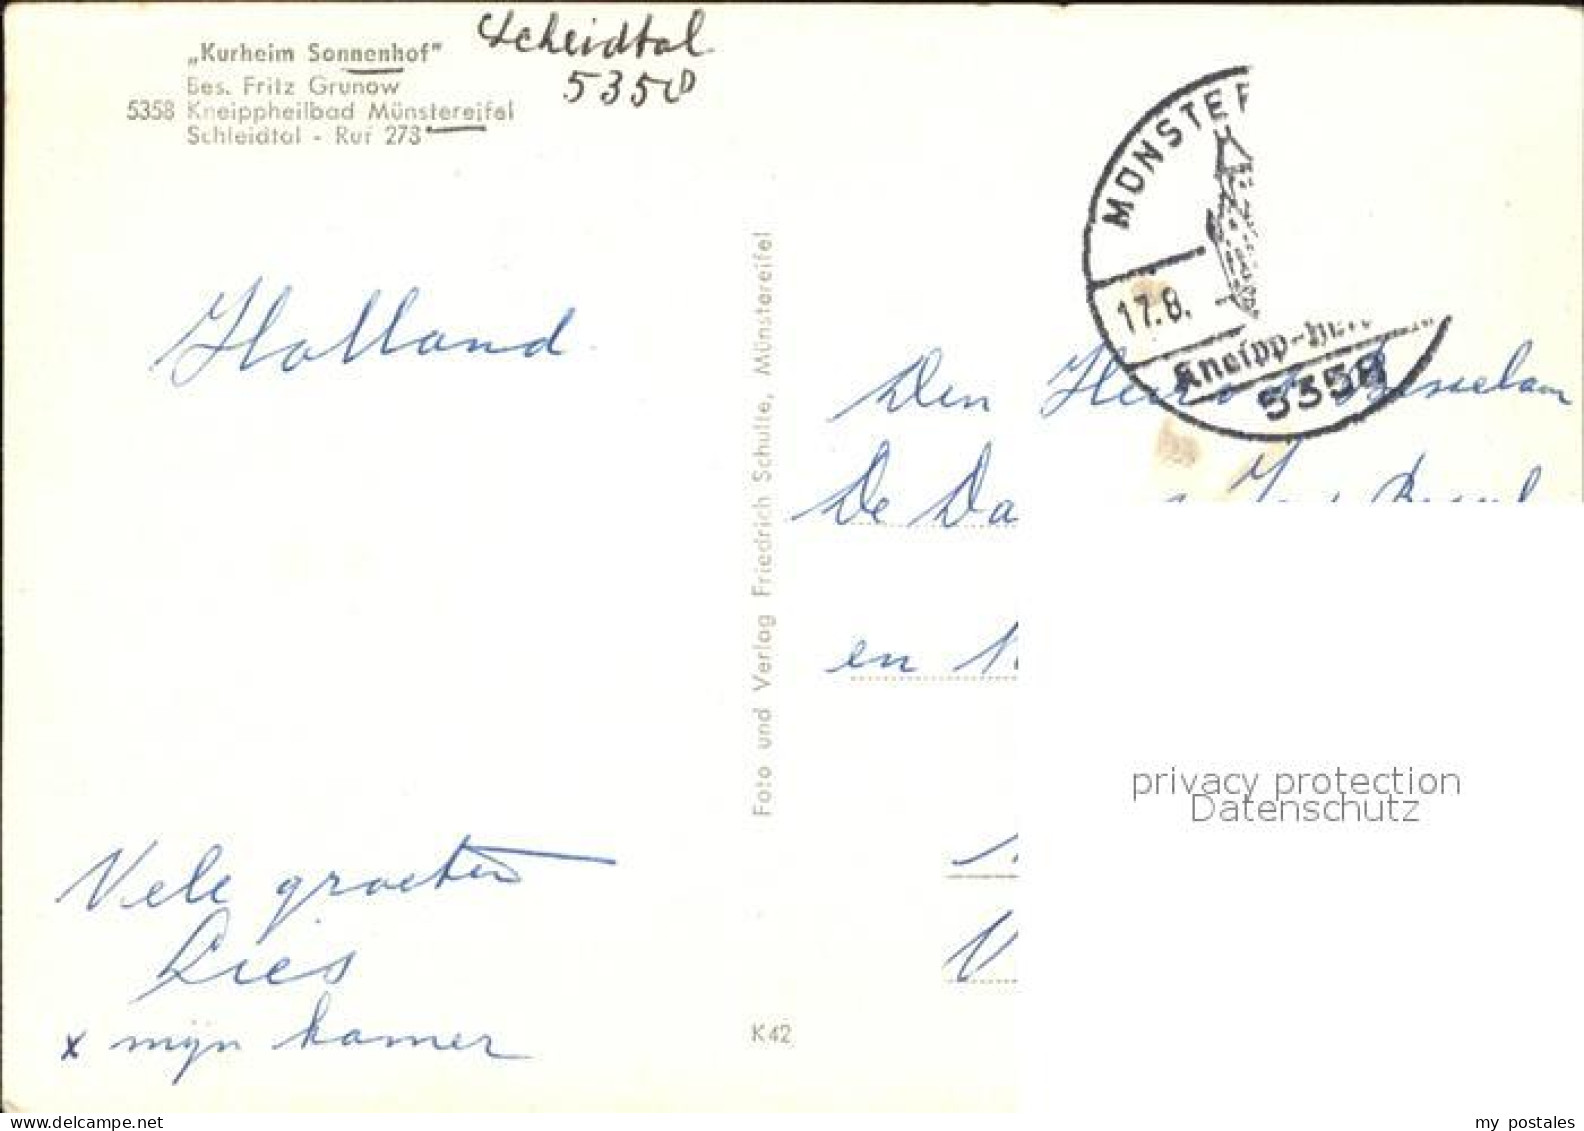 „Kurheim Sonnenhof"
Bes. Fritz Grunow
5358 Kneippheilbad Münstereifel
Schleidtal - Ruf 273
Scheidtal
5350
Holland
Vele groeten
Lies
x mijn kamer
Foto und Verlag Friedrich Schulte, Münstereifel
K 42
MÜNSTER
17.8.
Kneipp-
5358
Den Heer
De Da
en
privacy protection
Datenschutz
my postales